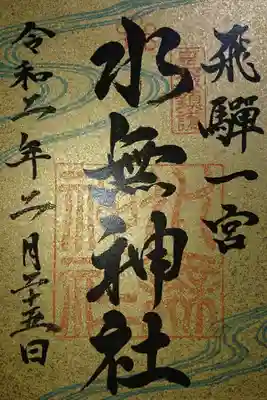 飛驒一宮
水無神社
令和二年二月二十五日